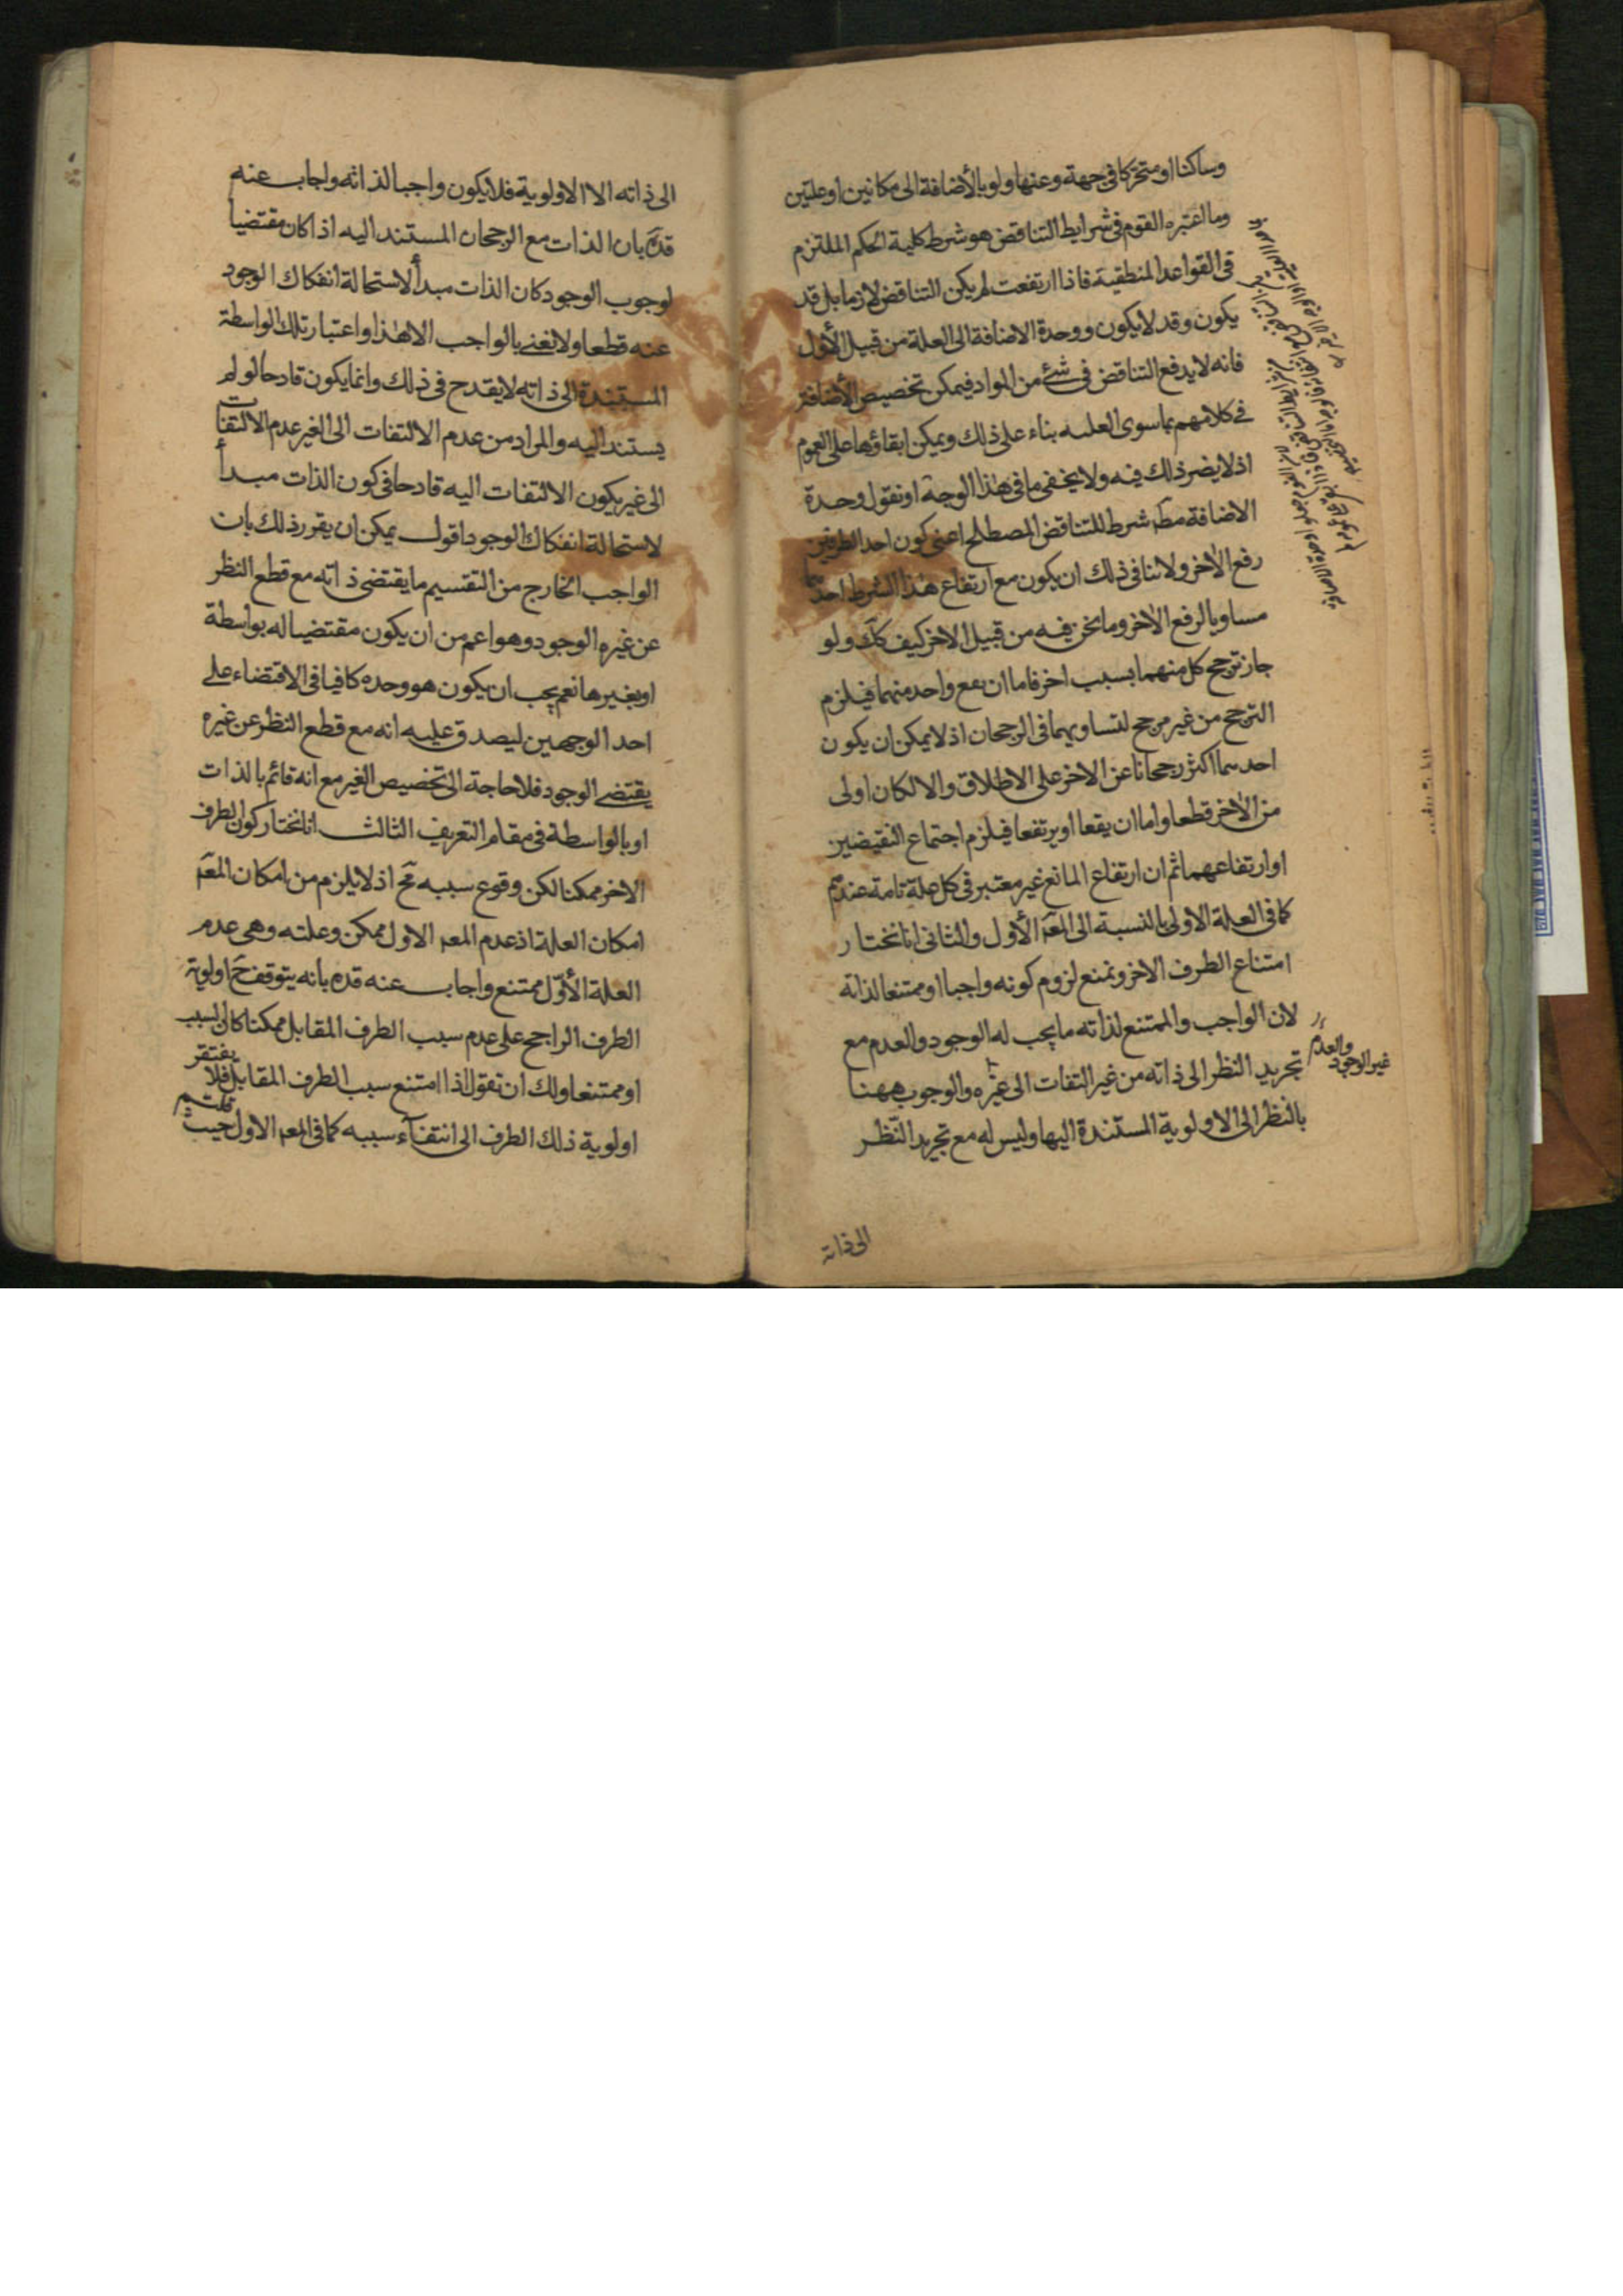 وساكنا او متحركا فى جهة وعنها ولو بالأضافة الى مكانين او علتين
وما اعتبره القوم فى شرايط التناقض هو شرط كلية الحكم الملتزم
فى القواعد المنطقية فاذا ارتفعت لم يكن التناقض لازما بل قد
يكون وقد لا يكون ووحدة الاضافة الى العلة من قبيل الأول
فانه لا يدفع التناقض فى شئ من المواد فيمكن تخصيص الأضافة
فى كلامهم بما سوى العلية بناء على ذلك ويمكن ابقاؤها على العموم
اذ لا يضر ذلك فيه ولا يخفى ما فى هذا الوجه او نقول وحدة
الاضافة مط شرط للتناقض المصطلح اعنى كون احد الطرفين
رفع الأخر ولا ننافى ذلك ان يكون مع ارتفاع هذا الشرط احدهما
مساويا لرفع الأخر وما نحن فيه من قبيل الاخر كيف كك ولو
جاز ترجح كل منهما بسبب اخر فاما ان يقع واحد منهما فيلزم
الترجح من غير مرجح لتساويهما فى الرجحان اذ لا يمكن ان يكون
احدهما اكثر رجحانا عن الاخر على الاطلاق والا لكان اولى
من الأخر قطعا واما ان يقعا او يرتفعا فيلزم اجتماع النقيضين
او ارتفاعهما ثم ان ارتفاع المانع غير معتبر فى كل علة تامة عندهم
كما فى العلة الاولى بالنسبة الى المعه الأول والثانى انا نختار
امتناع الطرف الاخر ونمنع لزوم كونه واجبا او ممتنعا لذاته
لان الواجب والممتنع لذاته ما يجب له الوجود والعدم مع
تجريد النظر الى ذاته من غير التفات الى غيره والوجوب ههنا
غير الوجود والعدم
بالنظر الى الاولوية المستندة اليها وليس له مع تجريد النظر
الى ذاته
الى ذاته الا الاولوية فلا يكون واجبا لذاته واجاب عنه
قده بان الذات مع الرجحان المستند اليه اذا كان مقتضيا
لوجوب الوجود كان الذات مبدأ لاستحالة انفكاك الوجود
عنه قطعا ولا نعنى بالواجب الا هذا واعتبار تلك الواسطة
المستندة الى ذاته لا يقدح فى ذلك وانما يكون قادحا لو لم
يستند اليه والمراد من عدم الالتفات الى الغير عدم الالتفات
الى غير يكون الالتفات اليه قادحا فى كون الذات مبدأ
لاستحالة انفكاك الوجود اقول يمكن ان يقرر ذلك بان
الواجب الخارج من التقسيم ما يقتضى ذاته مع قطع النظر
عن غيره الوجود وهو اعم من ان يكون مقتضيا له بواسطة
او بغيرها نعم يجب ان يكون هو وحده كافيا فى الاقتضاء على
احد الوجهين ليصدق عليه انه مع قطع النظر عن غيره
يقتضى الوجود فلا حاجة الى تخصيص الغير مع انه قائم بالذات
او بالواسطة فى مقام التعريف الثالث انا نختار كون الطرف
الاخر ممكنا لكن وقوع سببه مح اذ لا يلزم من امكان المعه
امكان العلة اذ عدم المعه الاول ممكن وعلته وهى عدم
العلة الأول ممتنع واجاب عنه قده بانه يتوقف ح اولوية
الطرف الراجح على عدم سبب الطرف المقابل ممكنا كان السبب
او ممتنعا ولك ان تقول اذا امتنع سبب الطرف المقابل فلا يفتقر
اولوية ذلك الطرف الى انتفاء سببه كما فى المعه الاول حيث